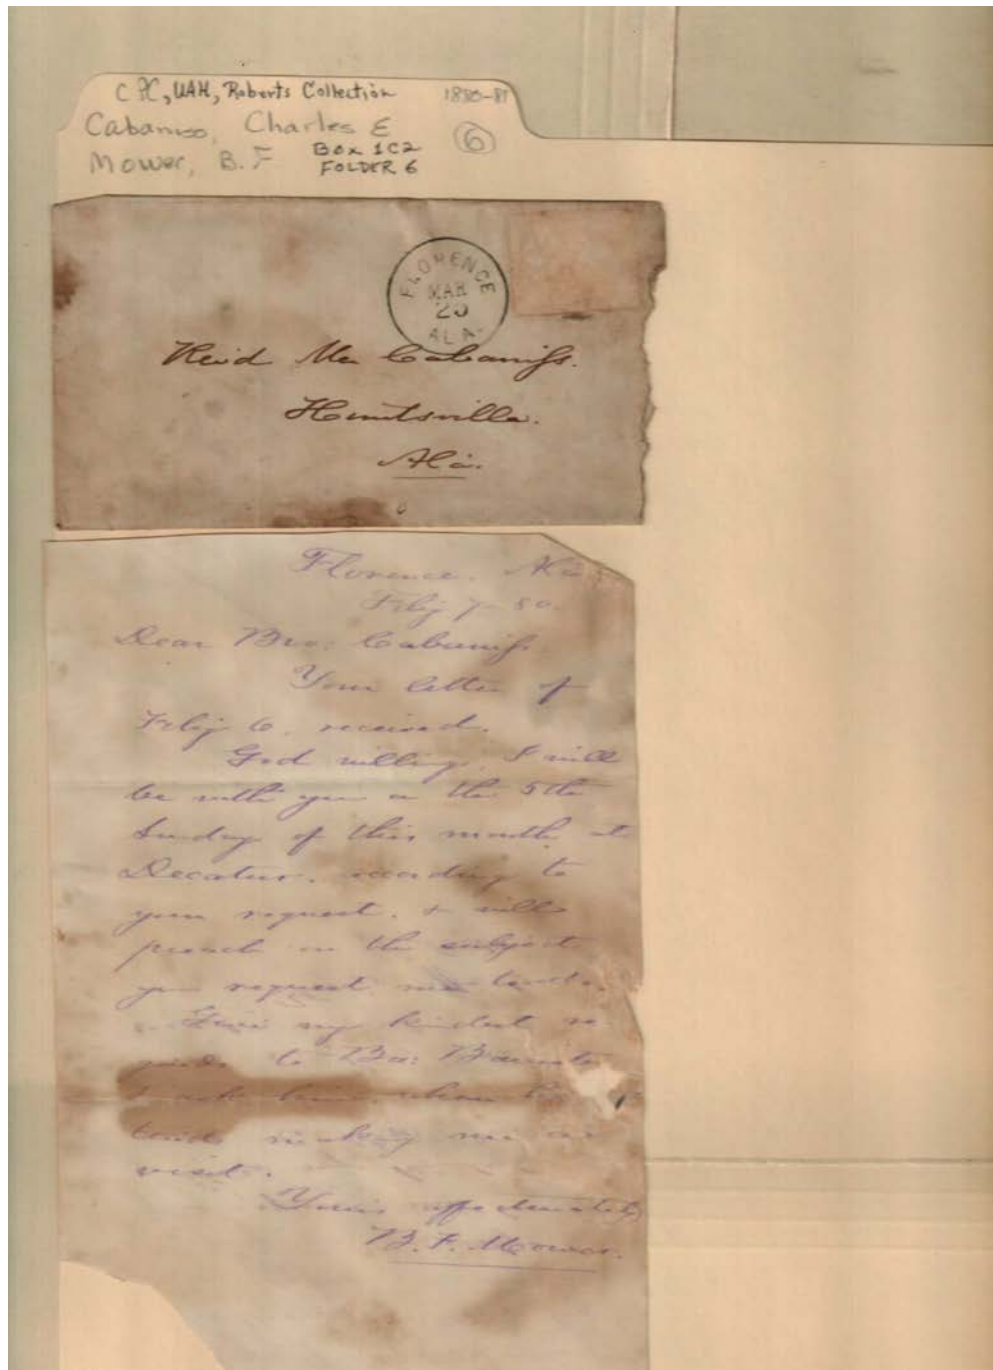 C PC, UAH, Roberts Collection 1880-81
Cabaniss, Charles E
Mower, B. F Box 1C2 6
FOLDER 6
FLORENCE
MAR
25
ALA.
Cabaniss.
Huntsville.
Ala.
Florence. Ala
Feby 7- 80.
Dear Bro: Cabaniss.
Your letter of
Feby 6. received.
God willing, I will
be with you on the 5th
Sunday of this month at
Decatur. according to
your request. & will
preach on the subject
you request me to.
Give my kindest re
gards to Bro:
& ask him. when he in
tends making me a
visit.
Yours affectionately
B. F. Mower.